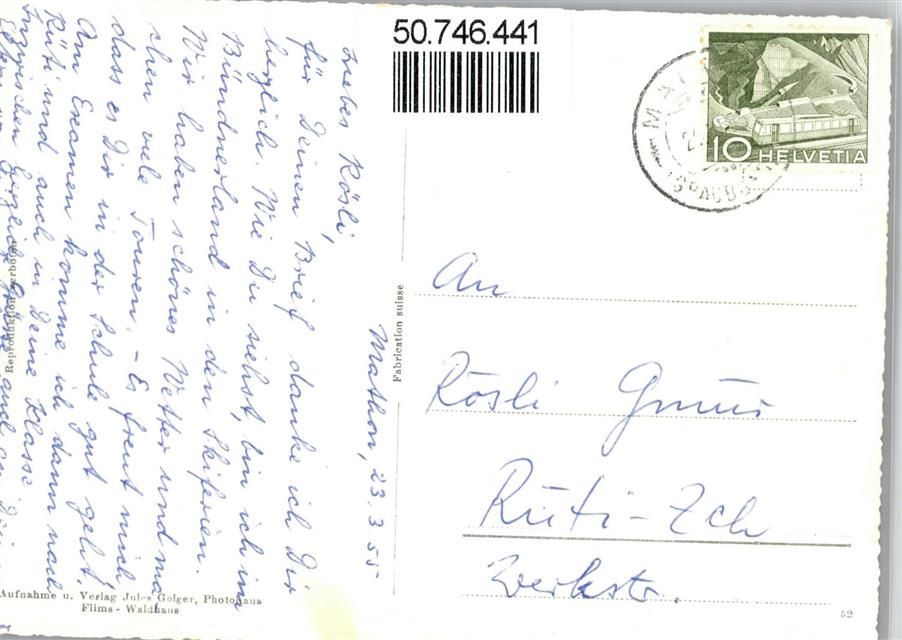 50.746.441
10 HELVETIA
Mathon, 23.3.55
Liebes Rösli,
für Deinen Brief danke ich Dir
herzlich. Wie Du siehst, bin ich im
Bündnerland in den Skiferien.
Wir haben schönes Wetter und ma
chen viele Touren. - Es freut mich,
dass es Dir in der Schule gut geht.
Am Examen komme ich dann nach
Rüti und auch in Deine Klasse
Inzwischen herzliche Grüsse auch an Dein
Fabrication suisse
Reproduktion verboten
Aufnahme u. Verlag Jules Golger, Photohaus
Flims - Waldhaus
An
Rösli Gmür
Rüti - Zch
Werkstr.
52